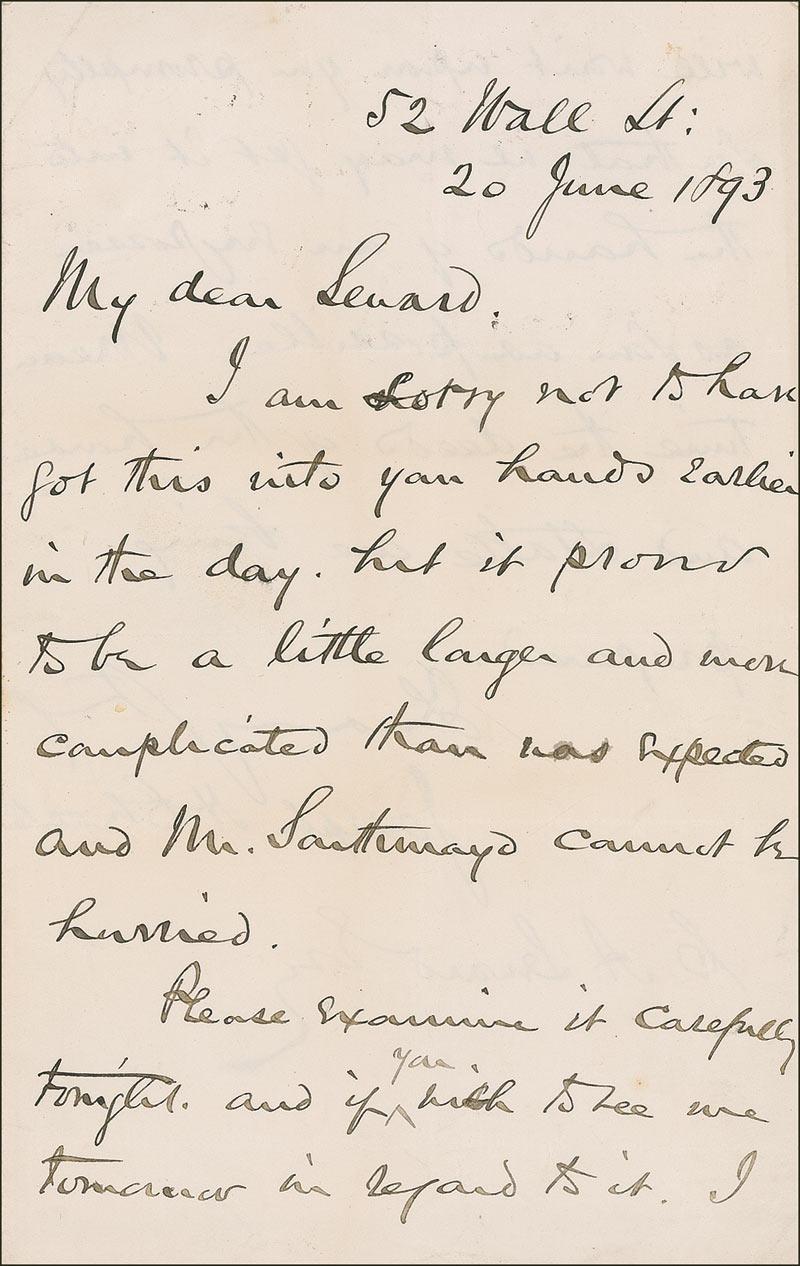 52 Wall St:
20 June 1893
My dear Seward.
I am sorry not to have
got this into your hands earlier
in the day. but it proved
to be a little longer and more
complicated than was expected
and Mr. Southmayd cannot be
hurried.
Please examine it carefully
tonight. and if you wish to see me
tomorrow in regard to it. I